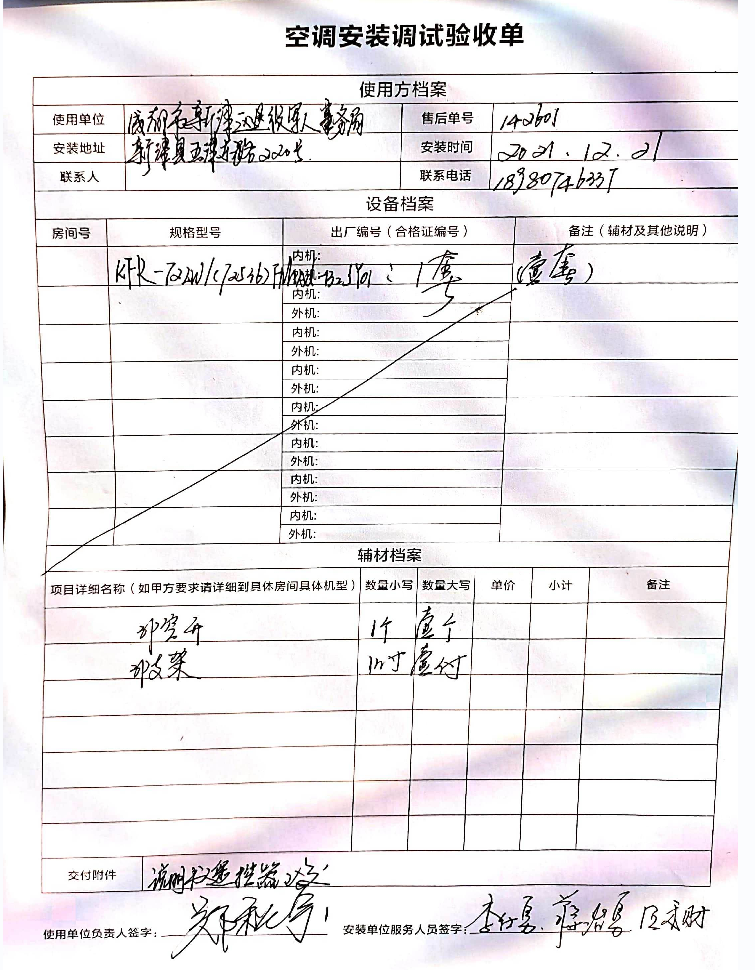 空调安装调试验收单
使用方档案
使用单位 成都市新津区退役军人事务局 售后单号 142601
安装地址 新津县五津东路220号 安装时间 2021.12.21
联系人 联系电话 18980746337
设备档案
房间号 规格型号 出厂编号（合格证编号） 备注（辅材及其他说明）
KFR-72LW/(72536) 内机: 1套 (壹套)
内机:
外机:
内机:
外机:
内机:
外机:
内机:
外机:
内机:
外机:
内机:
外机:
内机:
外机:
辅材档案
项目详细名称（如甲方要求请详细到具体房间具体机型） 数量小写 数量大写 单价 小计 备注
空开 1个 壹个
支架 1付 壹付
交付附件 说明书遥控器已交
使用单位负责人签字: 安装单位服务人员签字: